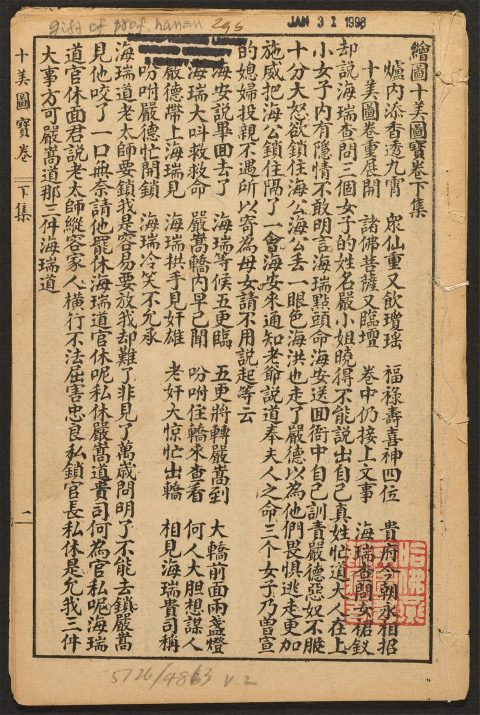 gift of prof. hanan 298
JAN 31 1998
繪圖十美圖寶卷下集
爐內添香透九霄 衆仙重又飲瓊瑤 福祿壽喜神四位 貴府今朝永相招
十美圖卷重展開 諸佛菩薩又臨壇 卷中仍接上文事 海瑞查問女裙釵
却說海瑞查問三個女子的姓名嚴小姐曉得不能說出自己真姓忙道大人在上
小女子內有隱情不敢明言海瑞點頭命海安送回衙中自己訓責嚴德惡奴不服
十分大怒欲鎖住海公海公丟一眼色海洪也走了嚴德以為他們畏惧逃走更加
施威把海公鎖住隔了一會海安來通知老爺說道奉夫人之命三個女子乃曾宣
的媳婦投親不遇所以寄為母女請不用說起等云
海安說畢回去了 海瑞等候五更臨 五更將轉嚴嵩到 大轎前面兩盞燈
海瑞大叫救救命 嚴嵩轎內早已聞 吩咐住轎來查看 何人大胆想謀人
嚴德帶上海瑞見 海瑞拱手見奸雄 老奸大惊忙出轎 相見海瑞貴司稱
吩咐嚴德忙開鎖 海瑞冷笑不允承
海瑞道老太師要鎖我是容易要放我却難了非見了萬歲問明了不能去鎖嚴嵩
見他咬了一口無奈請他罷休海瑞道官休呢私休嚴嵩道貴司何為官私呢海瑞
道官休面君說老太師縱容家人橫行不法屈害忠良私鎖官長私休是允我三件
大事方可嚴嵩道那三件海瑞道
十美圖寶卷 下集 一
5726/4863 v.2